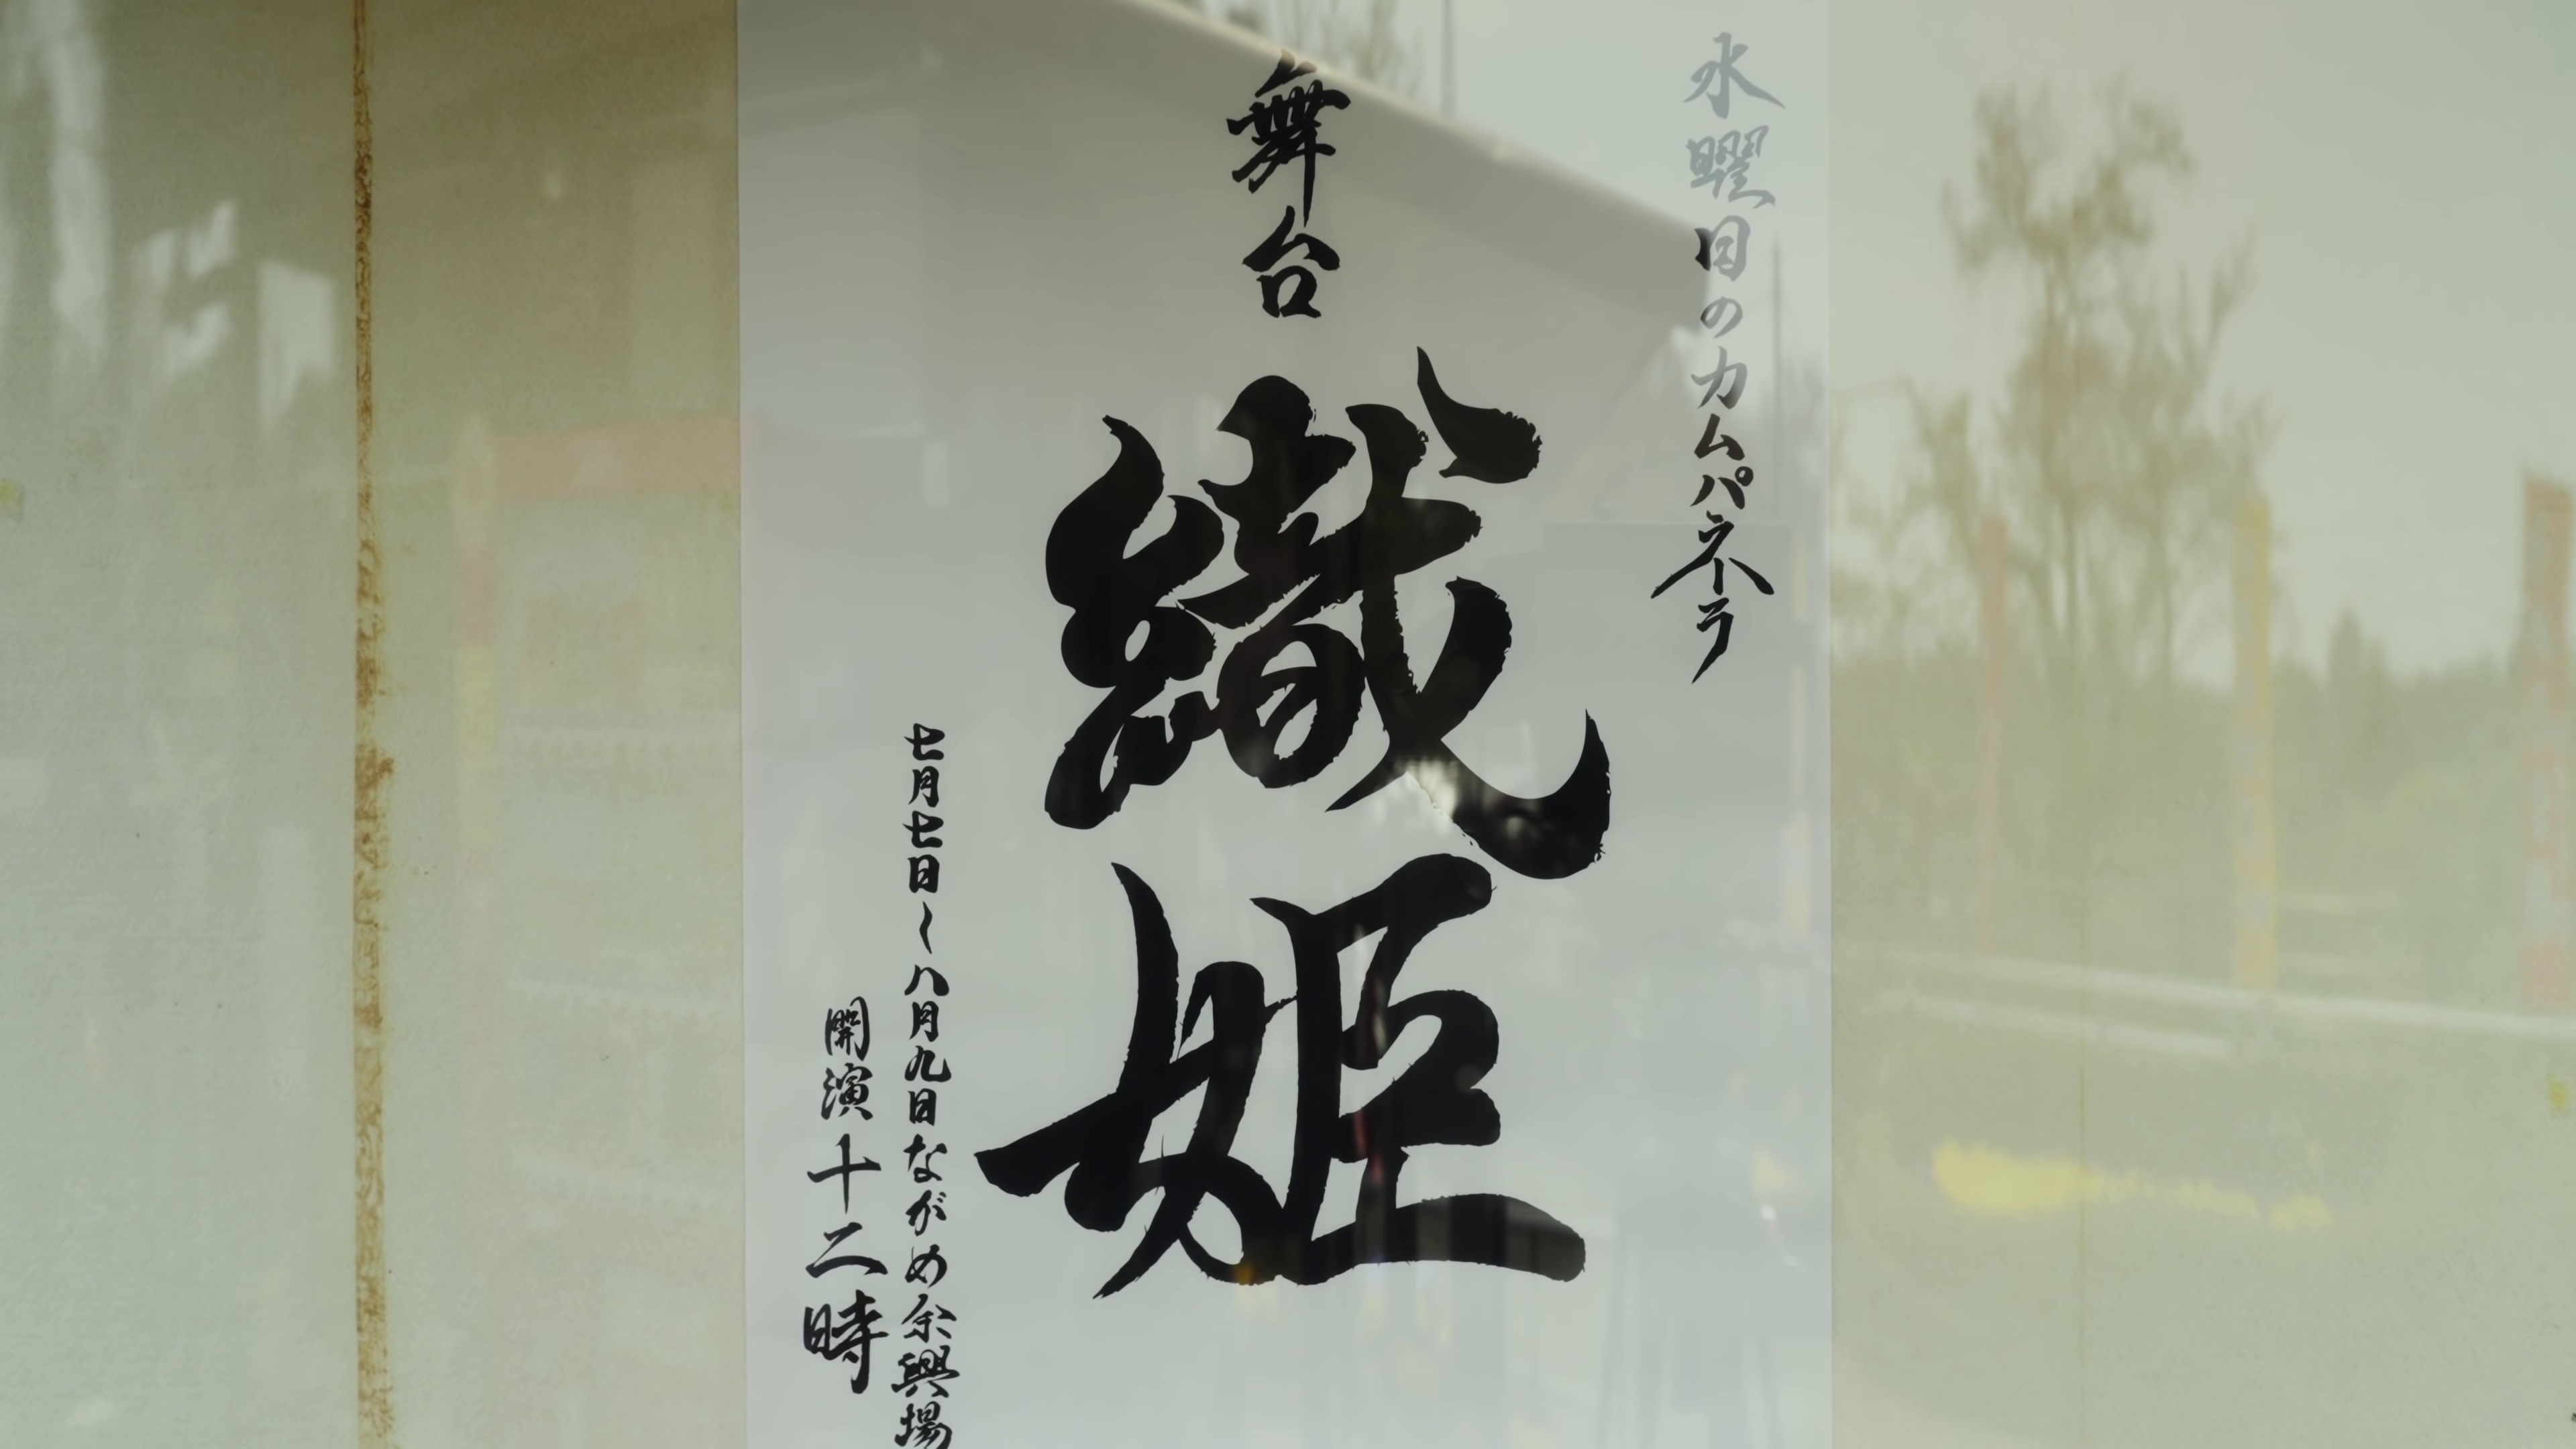 水曜日のカムパネラ
舞台
織姫
七月七日〜八月九日ながめ余興場
開演十二時